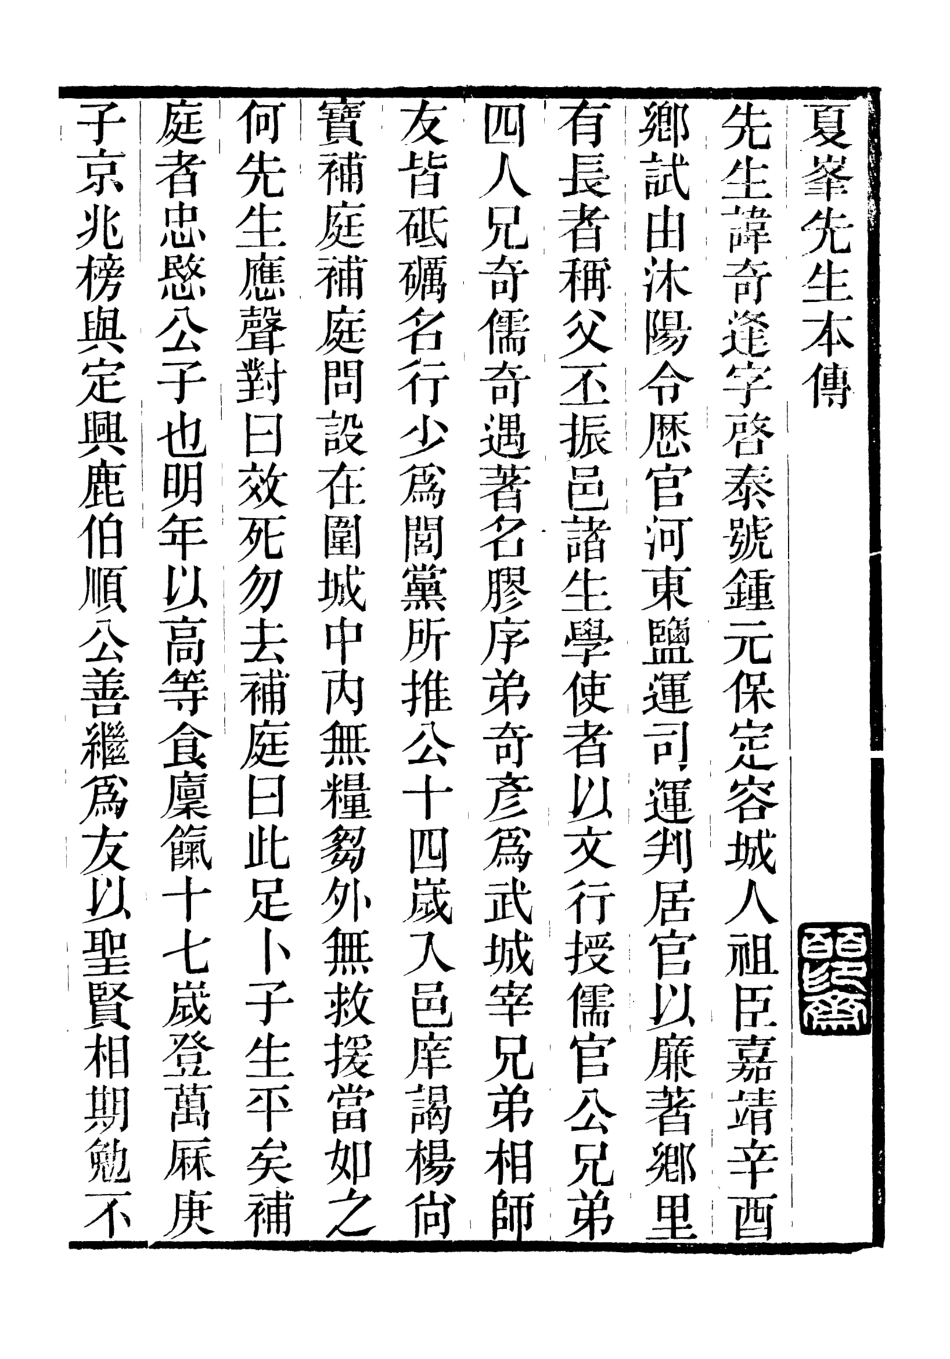 夏峯先生本傳
先生諱奇逢字啓泰號鍾元保定容城人祖臣嘉靖辛酉
鄉試由沭陽令厯官河東鹽運司運判居官以廉著鄉里
有長者稱父丕振邑諸生學使者以文行授儒官公兄弟
四人兄奇儒奇遇著名膠序弟奇彥爲武城宰兄弟相師
友皆砥礪名行少爲閭黨所推公十四歲入邑庠謁楊尙
寶補庭補庭問設在圍城中內無糧芻外無救援當如之
何先生應聲對曰效死勿去補庭曰此足卜子生平矣補
庭者忠愍公子也明年以高等食廩餼十七歲登萬厤庚
子京兆榜與定興鹿伯順公善繼爲友以聖賢相期勉不